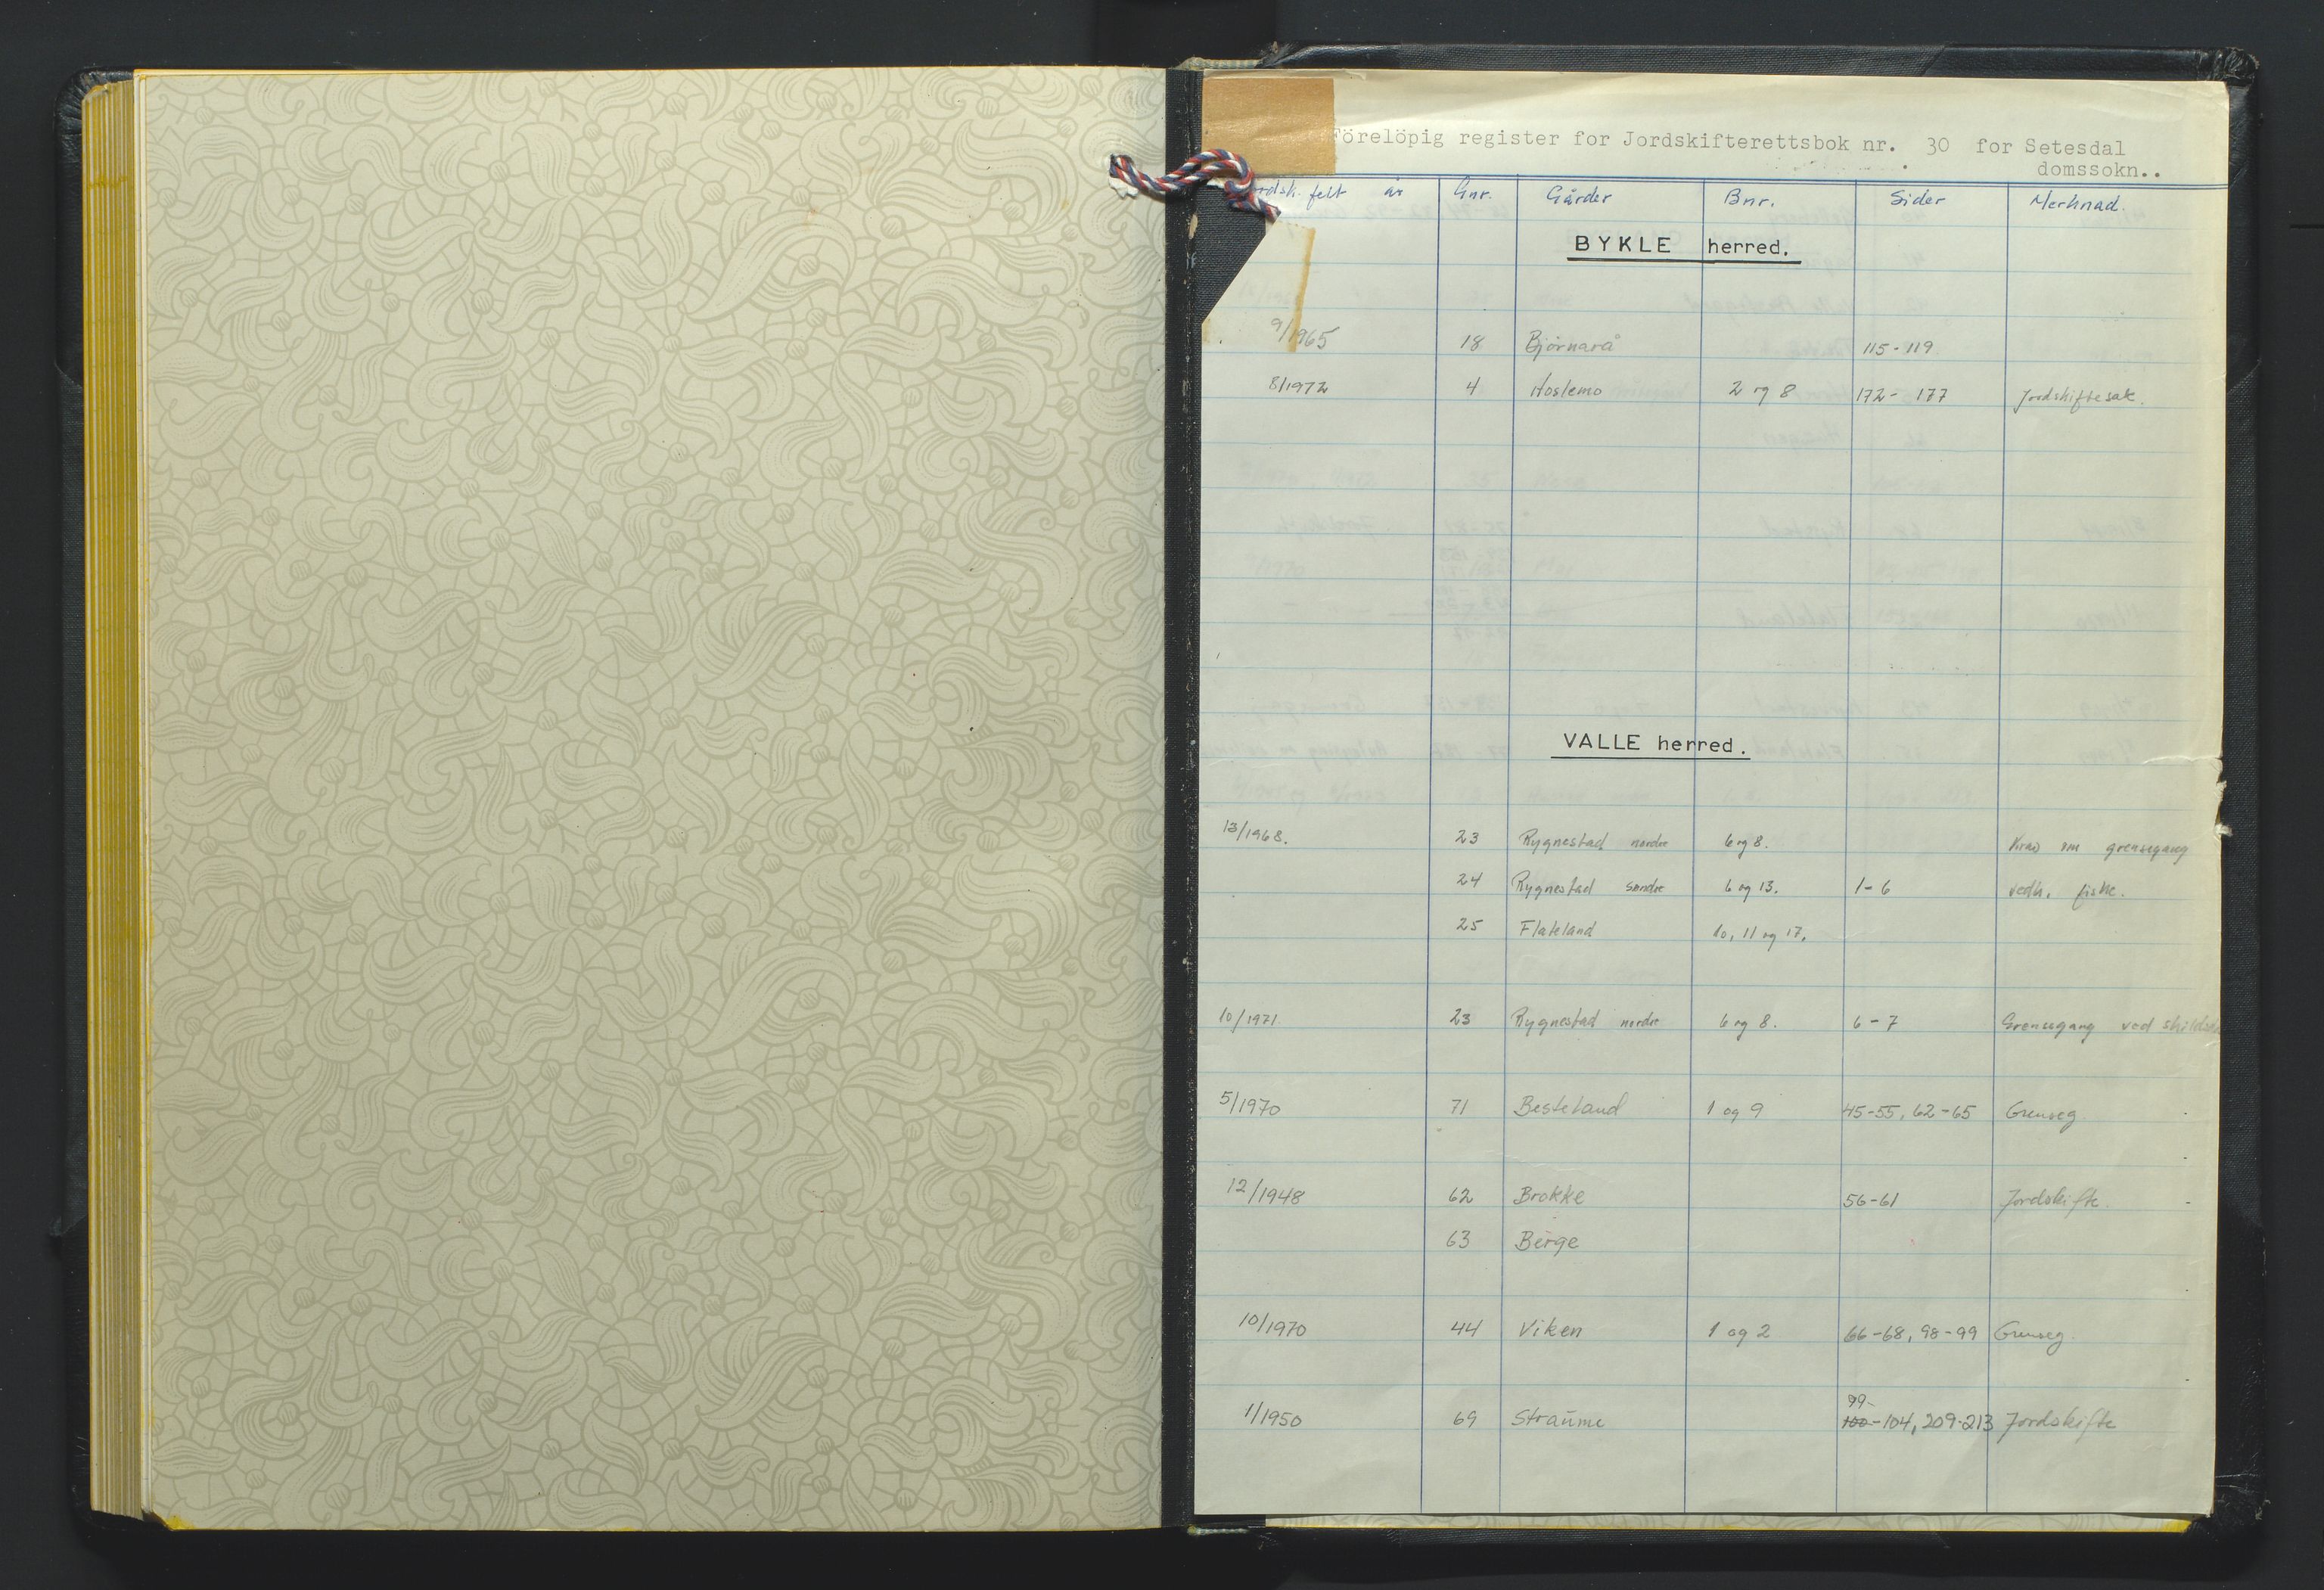 Förelöpig register for Jordskifterettsbok nr. 30 for Setesdal
domssokn..
felt år Gnr. Gårder Bnr. Sider Merknad.
BYKLE herred.
9/1965 18 Bjørnarå 115-119
8/1972 4 Hoslemo 2 og 8 172- 177 Jordskiftesak.
VALLE herred.
13/1968. 23 Rygnestad nordre 6 og 8. Krav om grensegang
24 Rygnestad søndre 6 og 13. 1-6 vedk. fiske.
25 Flateland 10, 11 og 17.
10/1971. 23 Rygnestad nordre 6 og 8. 6-7 Grensegang ved
5/1970 71 Besteland 1 og 9 45-55, 62-65 Grenseg.
12/1948 62 Brokke 56-61 Jordskifte.
63 Berge
10/1970 44 Viken 1 og 2 66-68, 98-99 Grenseg.
99-
1/1950 69 Straume 100-104, 209-213 Jordskifte